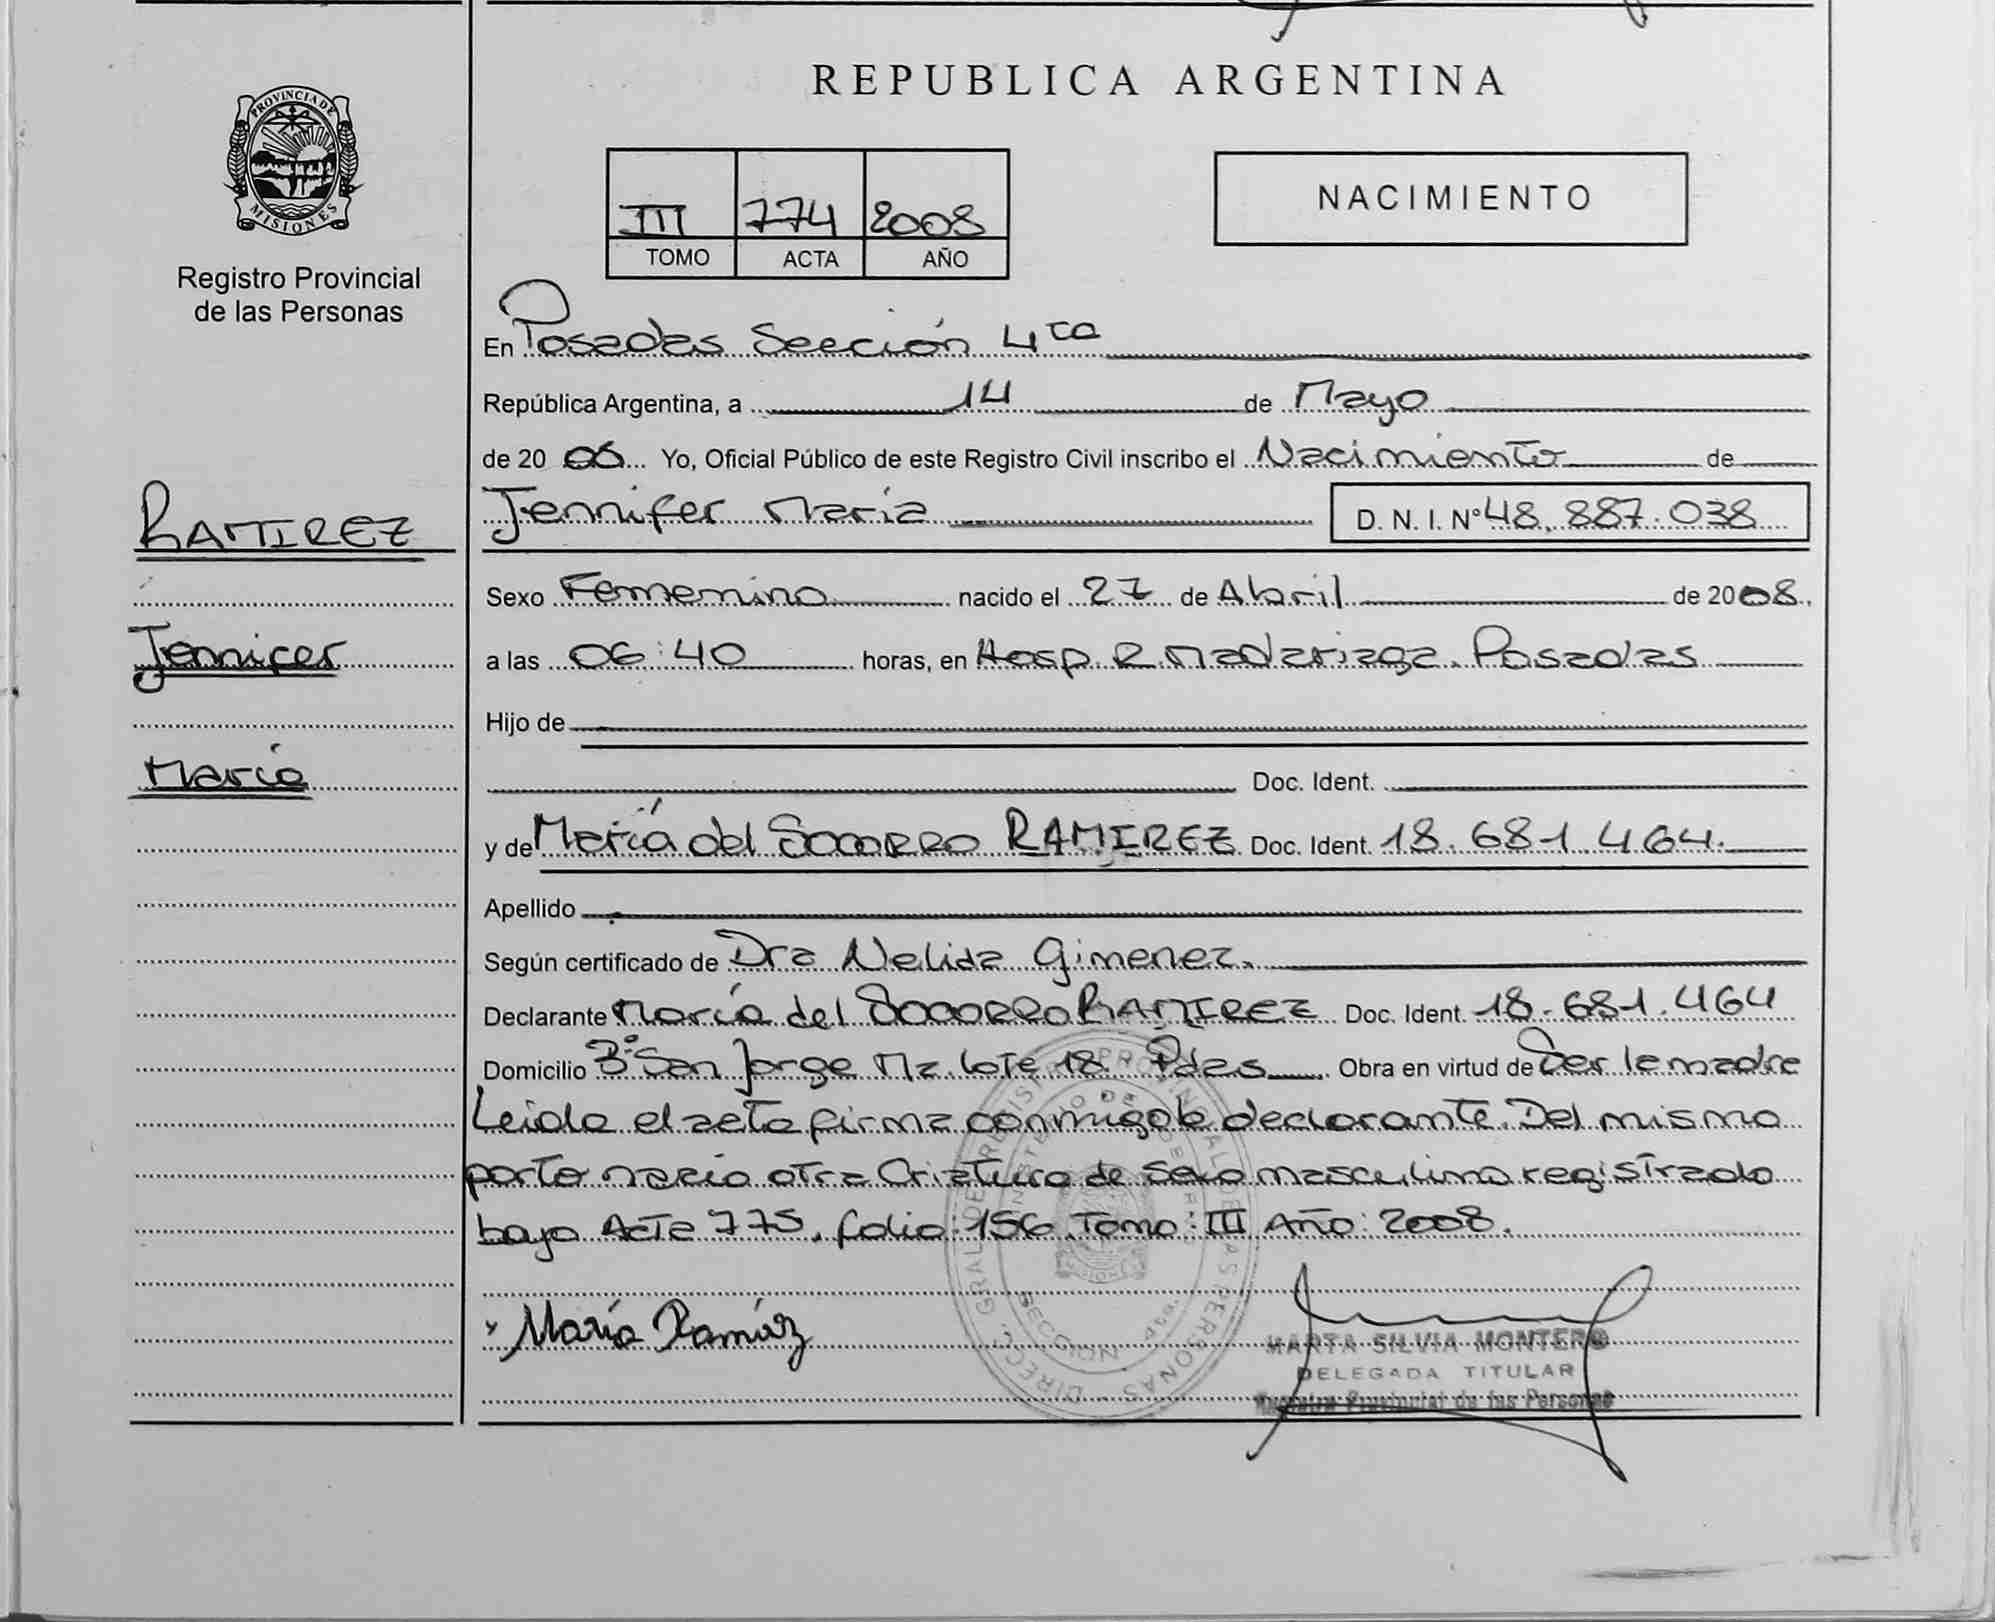 REPUBLICA ARGENTINA
PROVINCIA DE MISIONES
Registro Provincial
de las Personas
III 774 2008
TOMO ACTA AÑO
NACIMIENTO
En Posadas Sección 4ta
República Argentina, a 14 de Mayo
de 20 08 Yo, Oficial Público de este Registro Civil inscribo el Nacimiento de
RAMIREZ
Jennifer
María
Jennifer María D. N. I. Nº 48.887.038
Sexo Femenino nacido el 27 de Abril de 2008
a las 06:40 horas, en Hosp. R. Madariaga. Posadas
Hijo de
Doc. Ident.
y de María del Socorro RAMIREZ Doc. Ident. 18.681.464.
Apellido
Según certificado de Dra Nelida Gimenez.
Declarante María del Socorro RAMIREZ Doc. Ident. 18.681.464
Domicilio Bº San Jorge Mz lote 18 Pdas Obra en virtud de Ser la madre
Leida el acta firma conmigo la declarante. Del mismo
parto nacio otra Criatura de sexo masculino registrado
bajo Acta 775, folio: 156. Tomo: III Año: 2008.
María Ramírez
MARTA SILVIA MONTERO
DELEGADA TITULAR
Registro Provincial de las Personas